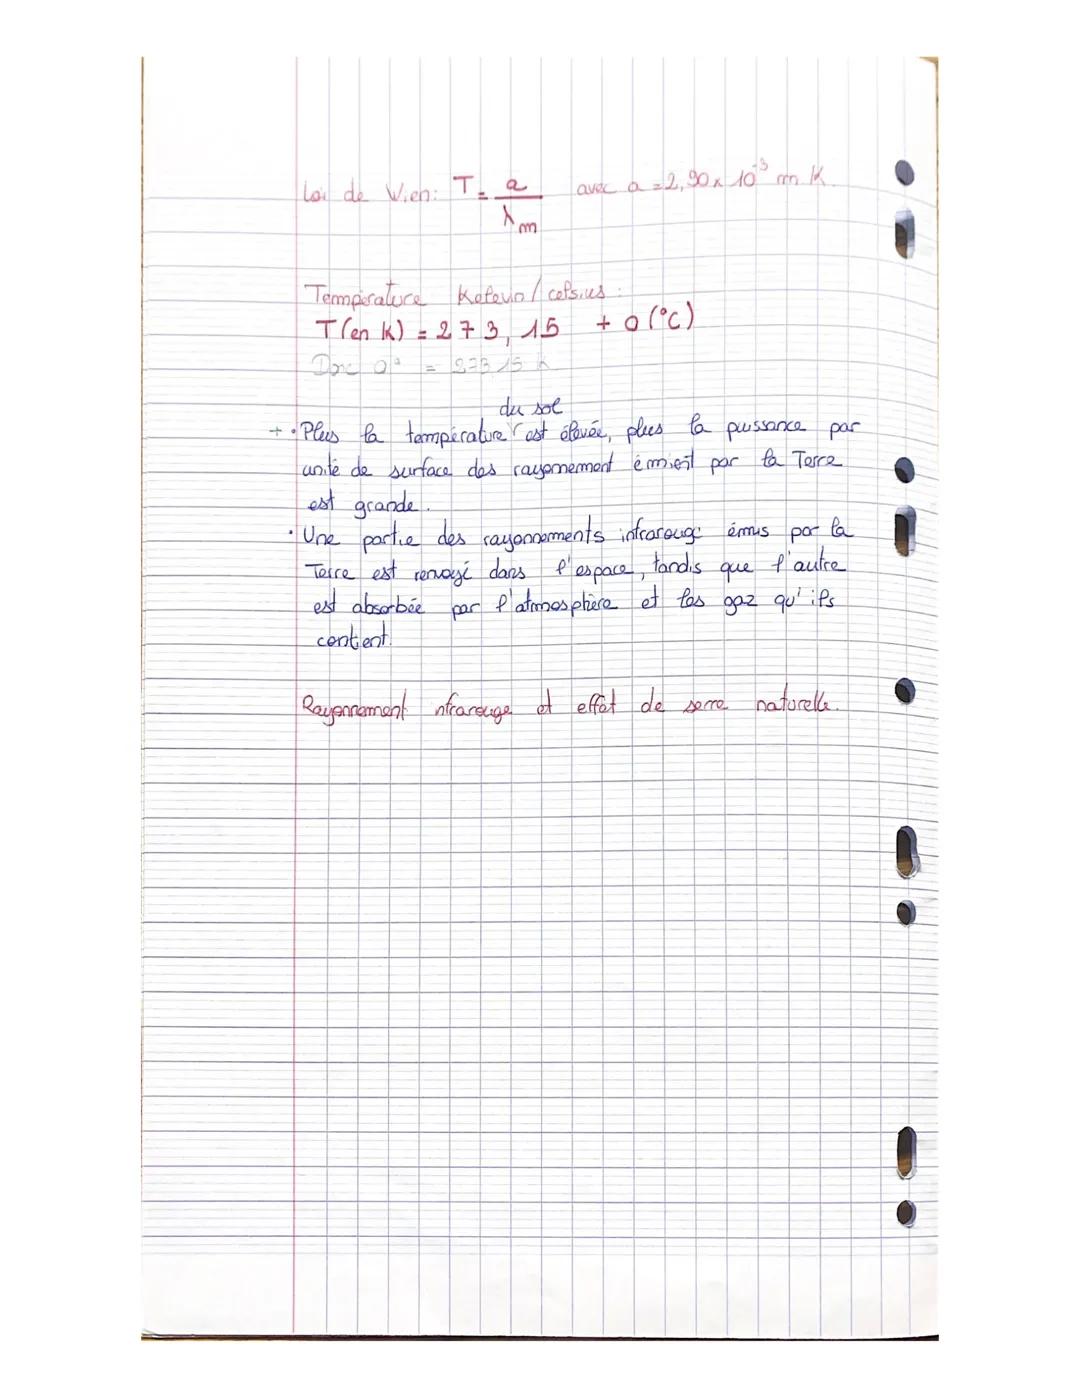 Loi de Wien: T = a / λm avec a = 2,90 x 10⁻³ m.K.
Température Kelevin / celsius :
T (en K) = 273,15 + 0 (°C)
Donc 0° = 273,15 K
du sol
+ • Plus la température est élevée, plus la puissance par
unité de surface des rayonnement émient par la Terre
est grande.
• Une partie des rayonnements infrarouge émis par la
Terre est renvoyé dans l'espace, tandis que l'autre
est absorbée par l'atmosphère et les gaz qu'ils
contient.
Rayonnement nfrarouge et effet de serre naturelle.